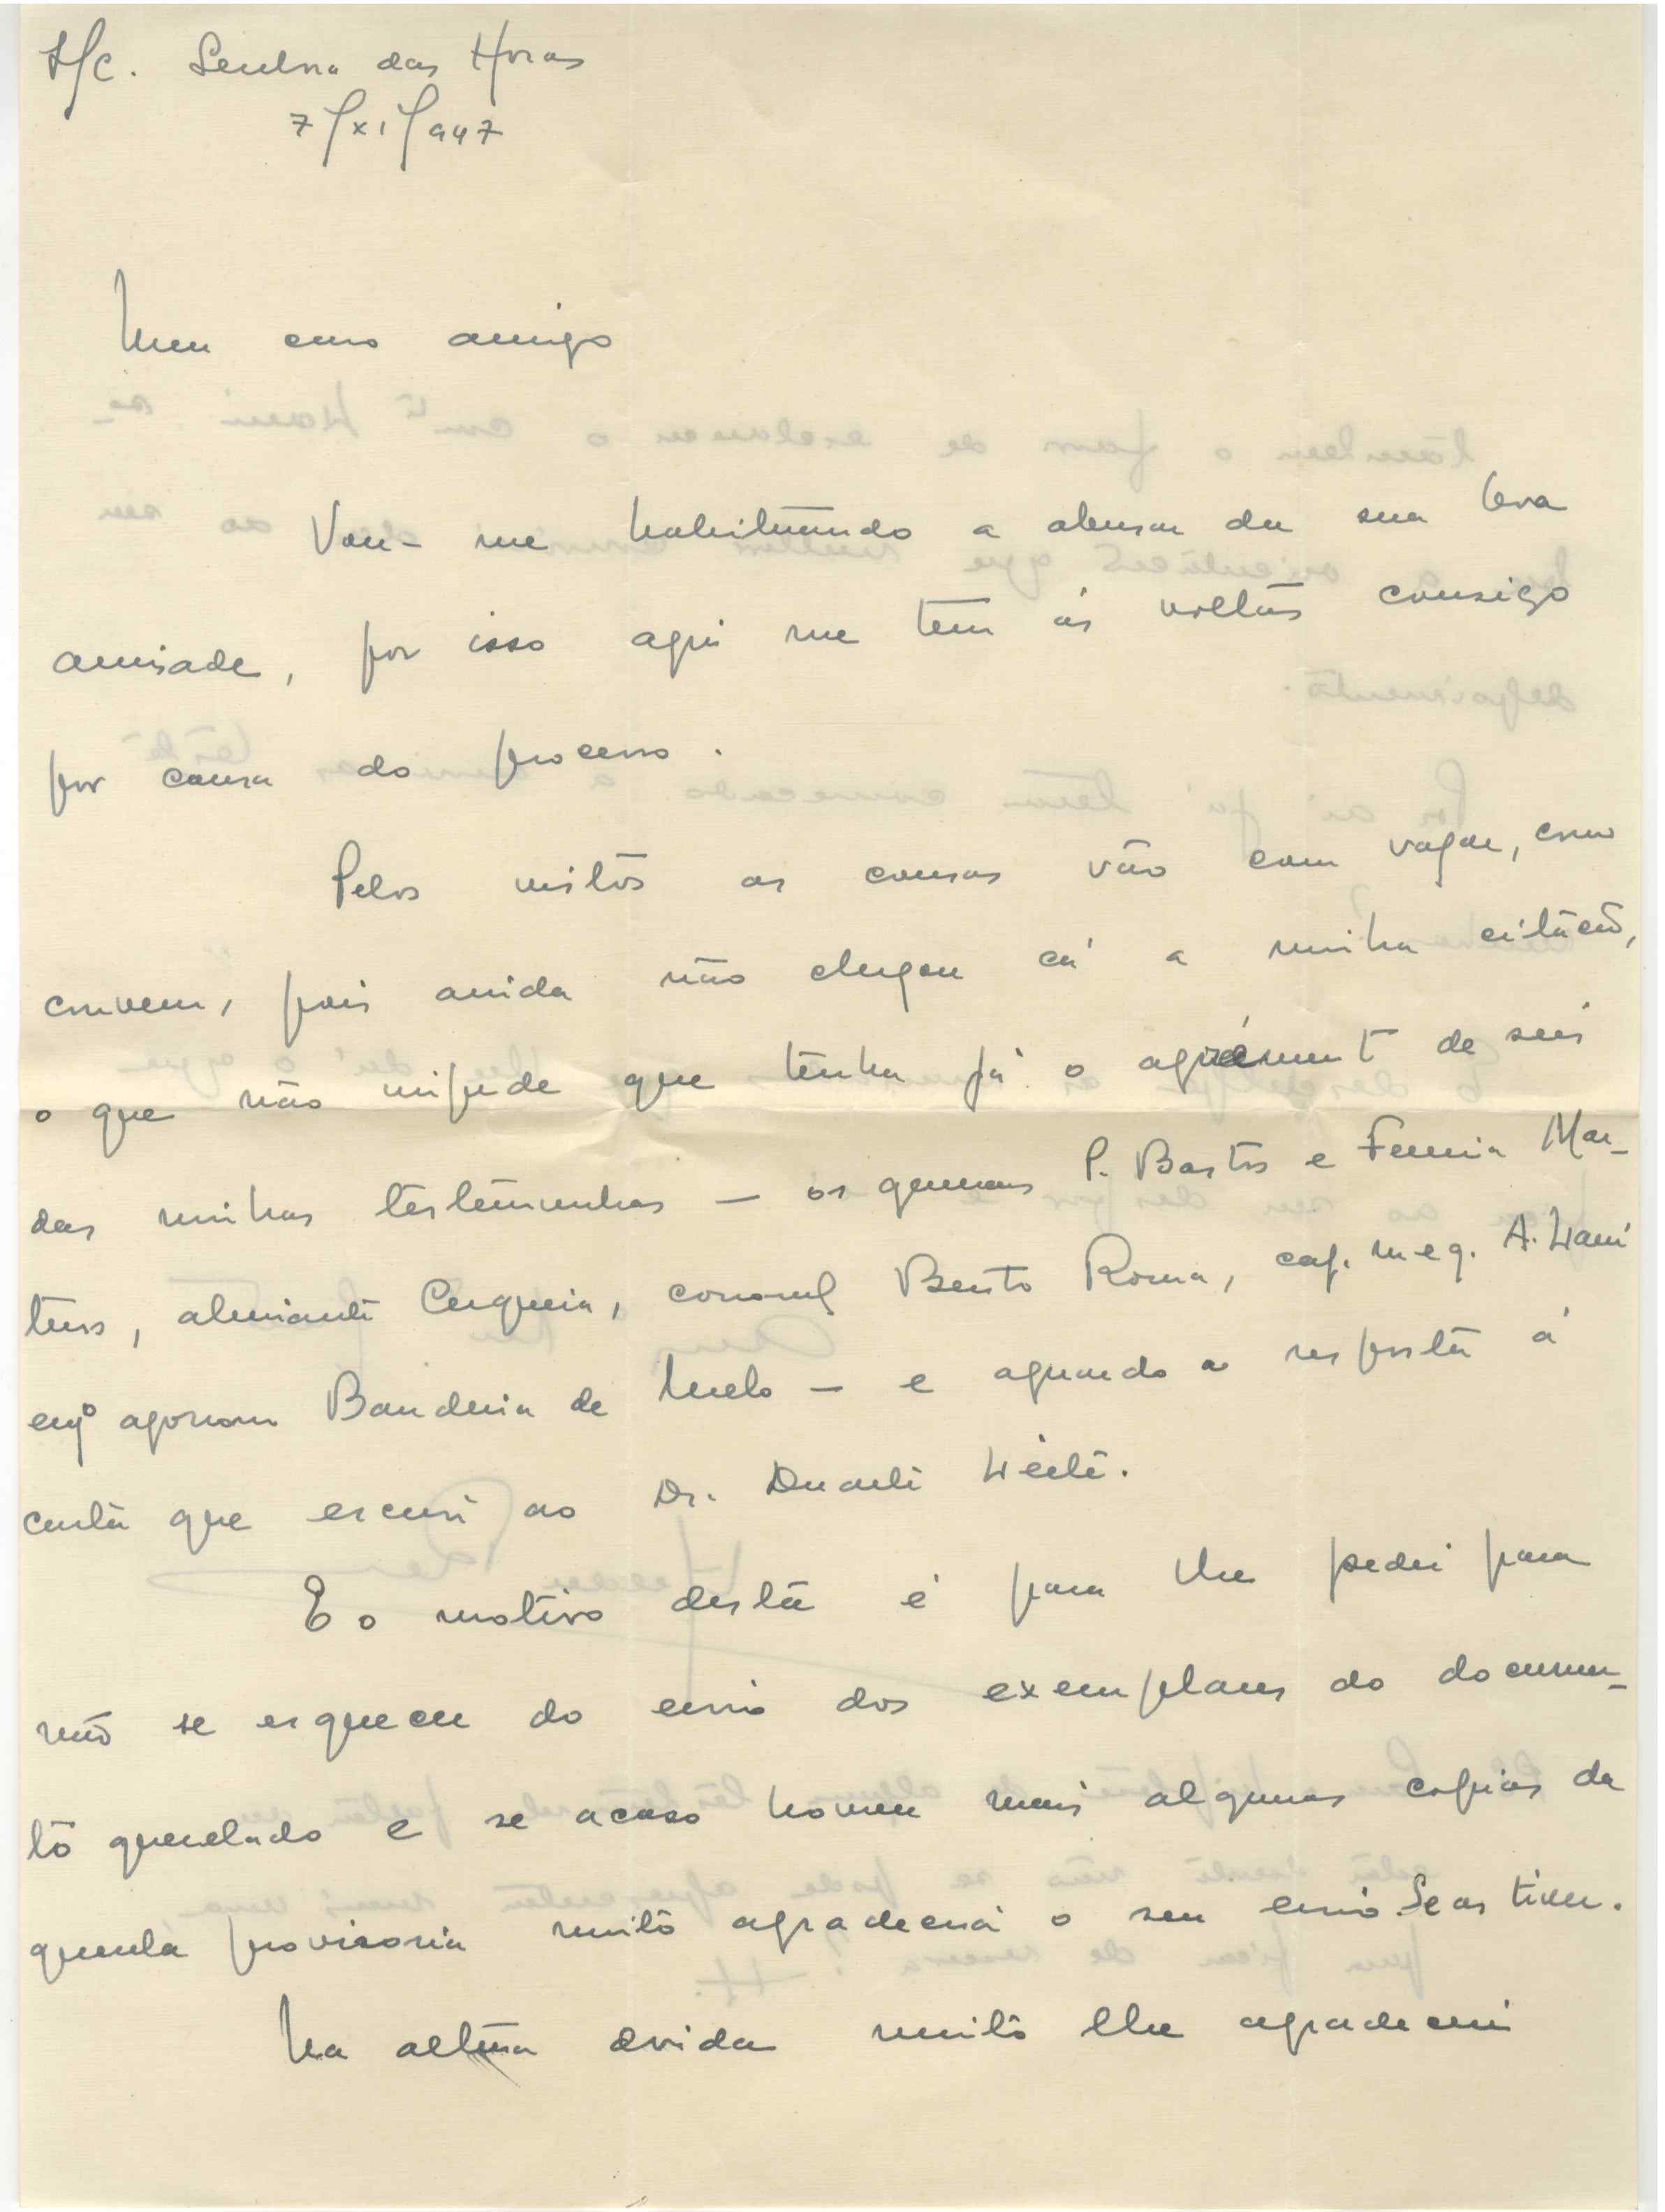 S/c. Senhora das Horas
7/XI/947
Meu caro amigo
Vou-me habituando a abusar da sua boa
amisade, por isso aqui me tem ás voltas consigo
por causa do processo.
Pelos vistos as cousas vão com vagar, como
convem, pois ainda não chegou cá a minha citação,
o que não impede que tenha já o agrément de seis
das minhas testemunhas — os generais P. Bastos e Ferreira Mar-
tins, almirante Cerqueira, coronel Bento Roma, cap. m e g. A. Leni
engº agronom Bandeira de Melo — e aguardo a resposta á
carta que escrevi ao Dr. Duarte Leite.
E o motivo desta é para lhe pedir para
não se esquecer do envio dos exemplares do documen-
to querelado e se acaso houver mais algumas copias da
querela provisoria muito agradecerei o seu envio se as tiver.
Na altura devida muito lhe agradecerei